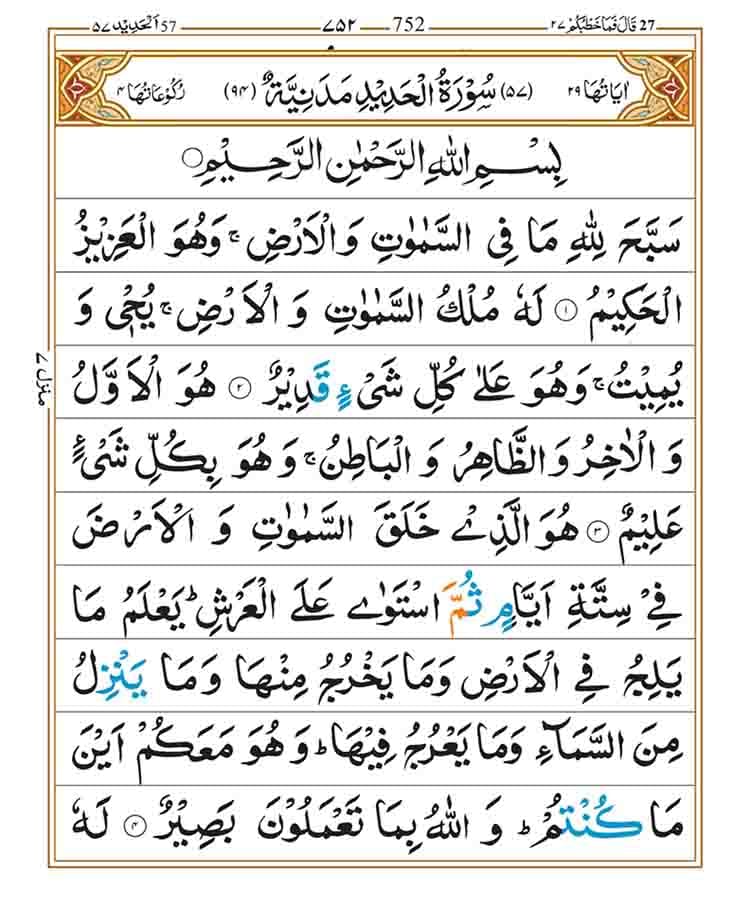 57 اَلْحَدِيْد ٥٧ ٧٥٢ 752 27 قَالَ فَمَا خَطْبُكُمْ ٢٧
اٰيَاتُهَا ٢٩ (٥٧) سُوْرَةُ الْحَدِيْدِ مَدَنِيَّةٌ (٩٤) رُكُوْعَاتُهَا ٤
بِسْمِ اللّٰهِ الرَّحْمٰنِ الرَّحِيْمِ
سَبَّحَ لِلّٰهِ مَا فِى السَّمٰوٰتِ وَالْاَرْضِ ۚ وَهُوَ الْعَزِيْزُ
الْحَكِيْمُ ١ لَهٗ مُلْكُ السَّمٰوٰتِ وَ الْاَرْضِ ۚ يُحْيٖ وَ
يُمِيْتُ ۚ وَهُوَ عَلٰى كُلِّ شَىْءٍ قَدِيْرٌ ٢ هُوَ الْاَوَّلُ
وَ الْاٰخِرُ وَ الظَّاهِرُ وَ الْبَاطِنُ ۚ وَ هُوَ بِكُلِّ شَىْءٍ
عَلِيْمٌ ٣ هُوَ الَّذِىْ خَلَقَ السَّمٰوٰتِ وَ الْاَرْضَ
فِىْ سِتَّةِ اَيَّامٍ ثُمَّ اسْتَوٰى عَلَى الْعَرْشِ ؕ يَعْلَمُ مَا
يَلِجُ فِى الْاَرْضِ وَمَا يَخْرُجُ مِنْهَا وَمَا يَنْزِلُ
مِنَ السَّمَآءِ وَمَا يَعْرُجُ فِيْهَا ؕ وَ هُوَ مَعَكُمْ اَيْنَ
مَا كُنْتُمْ ؕ وَ اللّٰهُ بِمَا تَعْمَلُوْنَ بَصِيْرٌ ٤ لَهٗ
منزل ٧